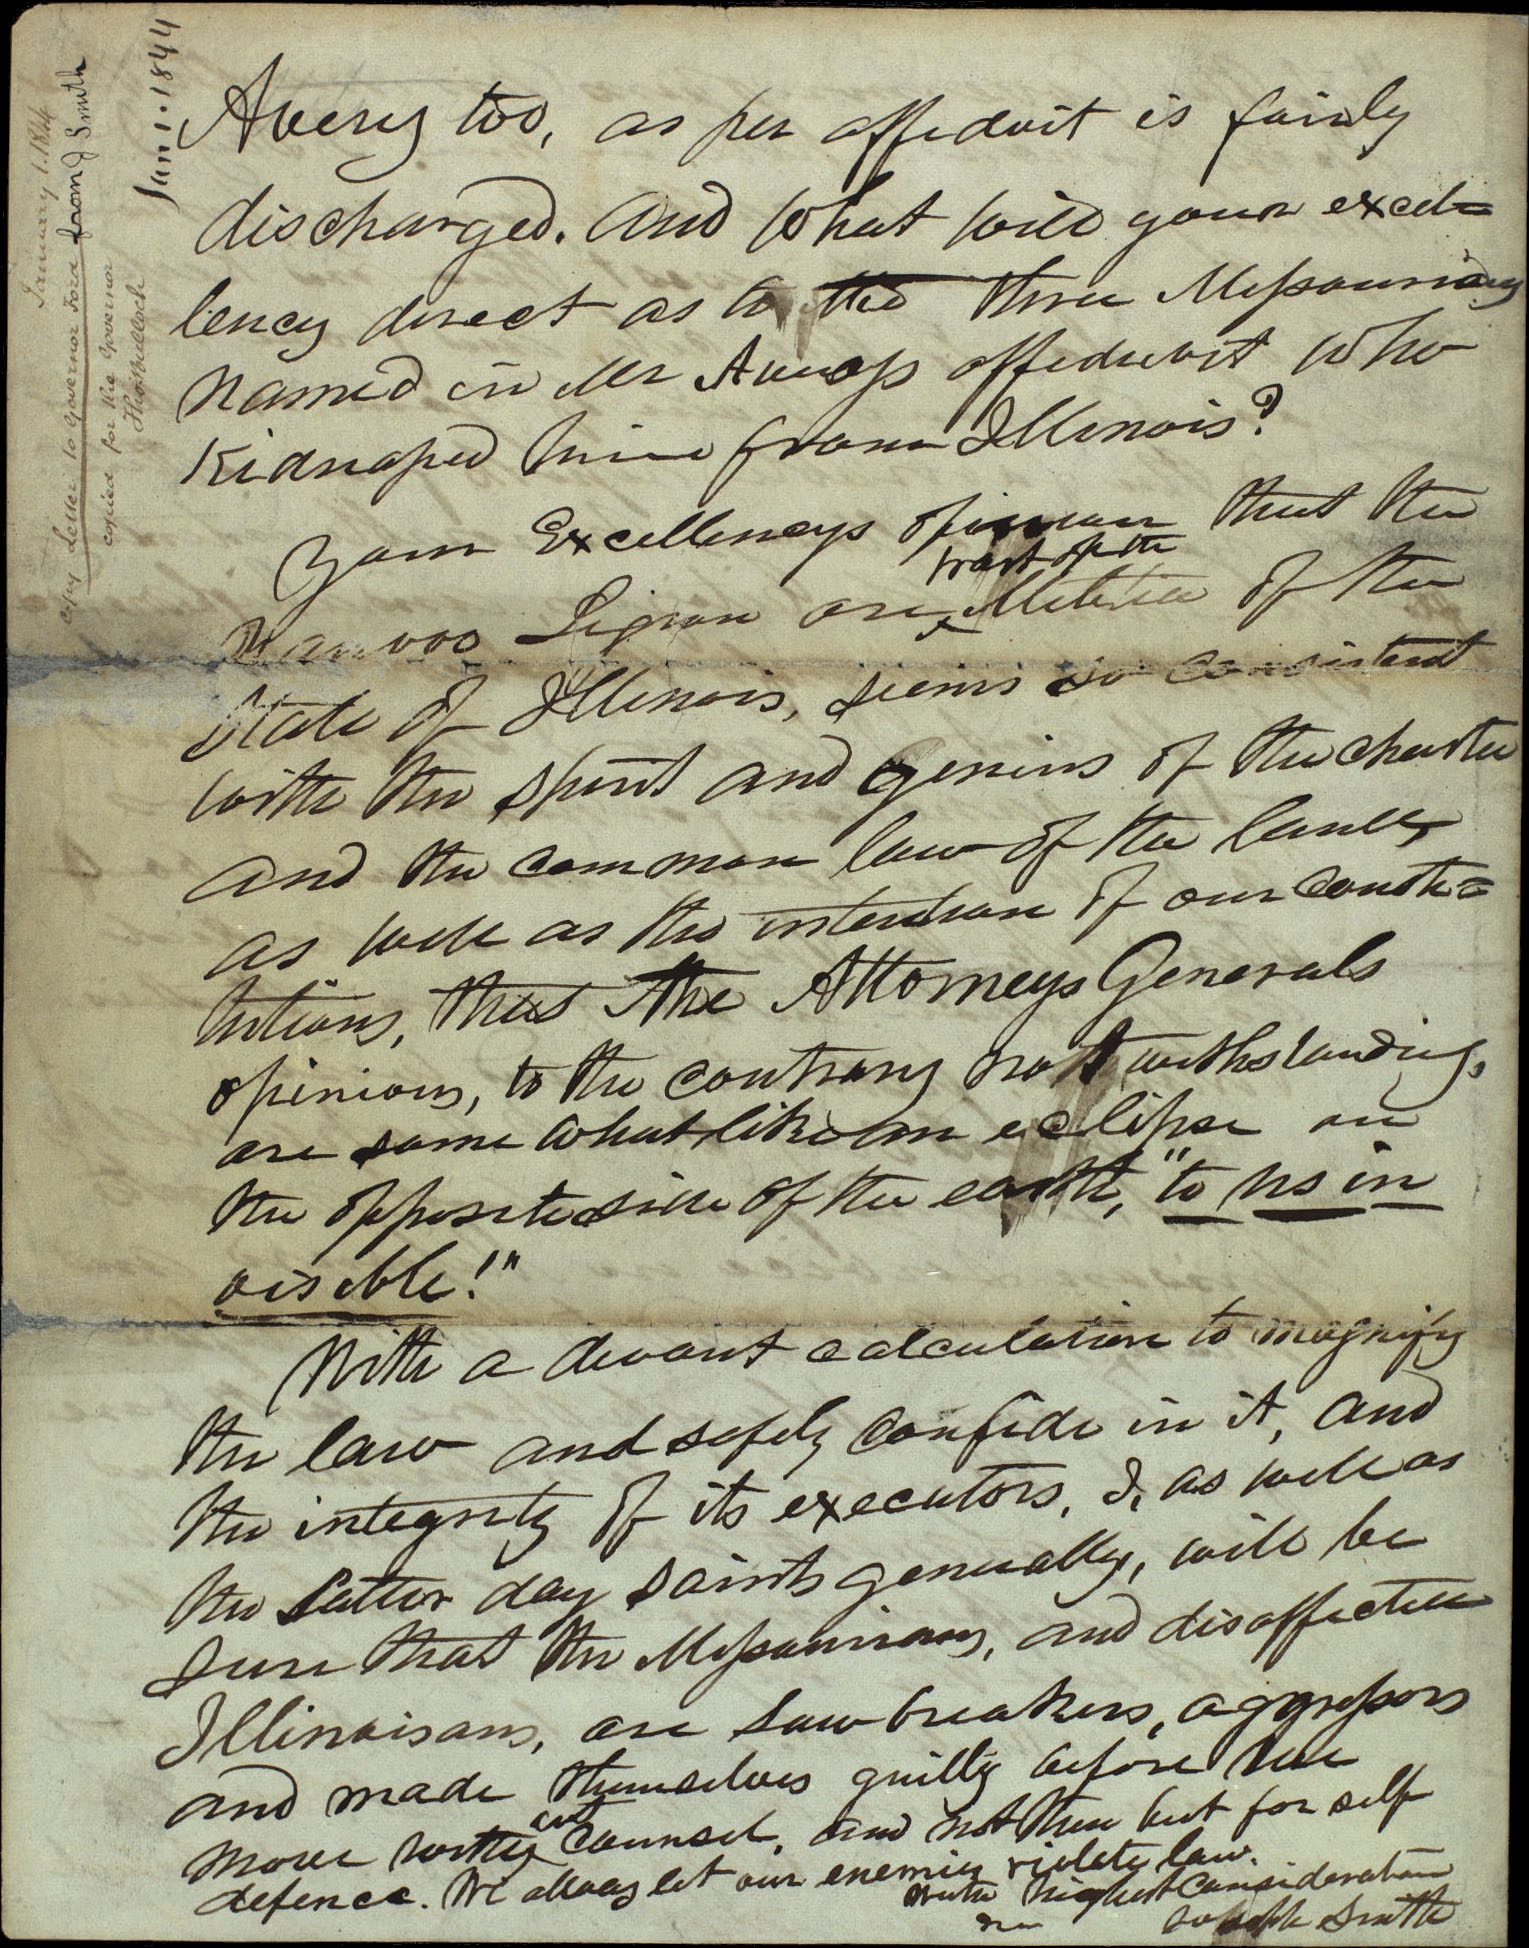 Avery too, as per affidavit is fairly
discharged. And what will your excel=
lency direct as to the three Missourians
named in Mr Averys affidavit who
Kidnaped him from Illinois?
Your Excellencys opinion that the
part of the
Nauvoo Legion are ^ Militia of the
State of Illinois, seems so consistent
with the spirit and genius of the charter
and the common law of the land,
as well as the intention of our consti=
tutions, that the Attorneys Generals
opinions, to the contrary notwithstanding,
are some what like an eclipse on
the opposite side of the earth, "to us in
visible!"
With a devout calculation to magnify
the law and safely confide in it, and
the integrity of its executors, I, as well as
the Latter day saints generally, will be
sure that the Missourians, and disaffected
Illinoisans, are law breakers, aggressors
and made themselves guilty before we
move without counsel, and not then but for self
defence. We always let our enemies violate law.
with highest consideration
Joseph Smith
Jan 1. 1844
January 1. 1844
copy Letter to Governor Ford from J Smith
copied for the Governor
Thos Bullock